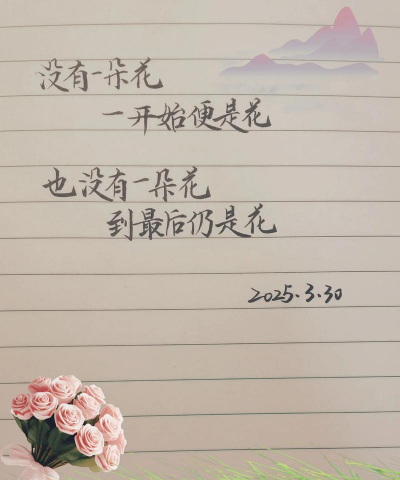 没有一朵花
一开始便是花
也没有一朵花
到最后仍是花
2025.3.30